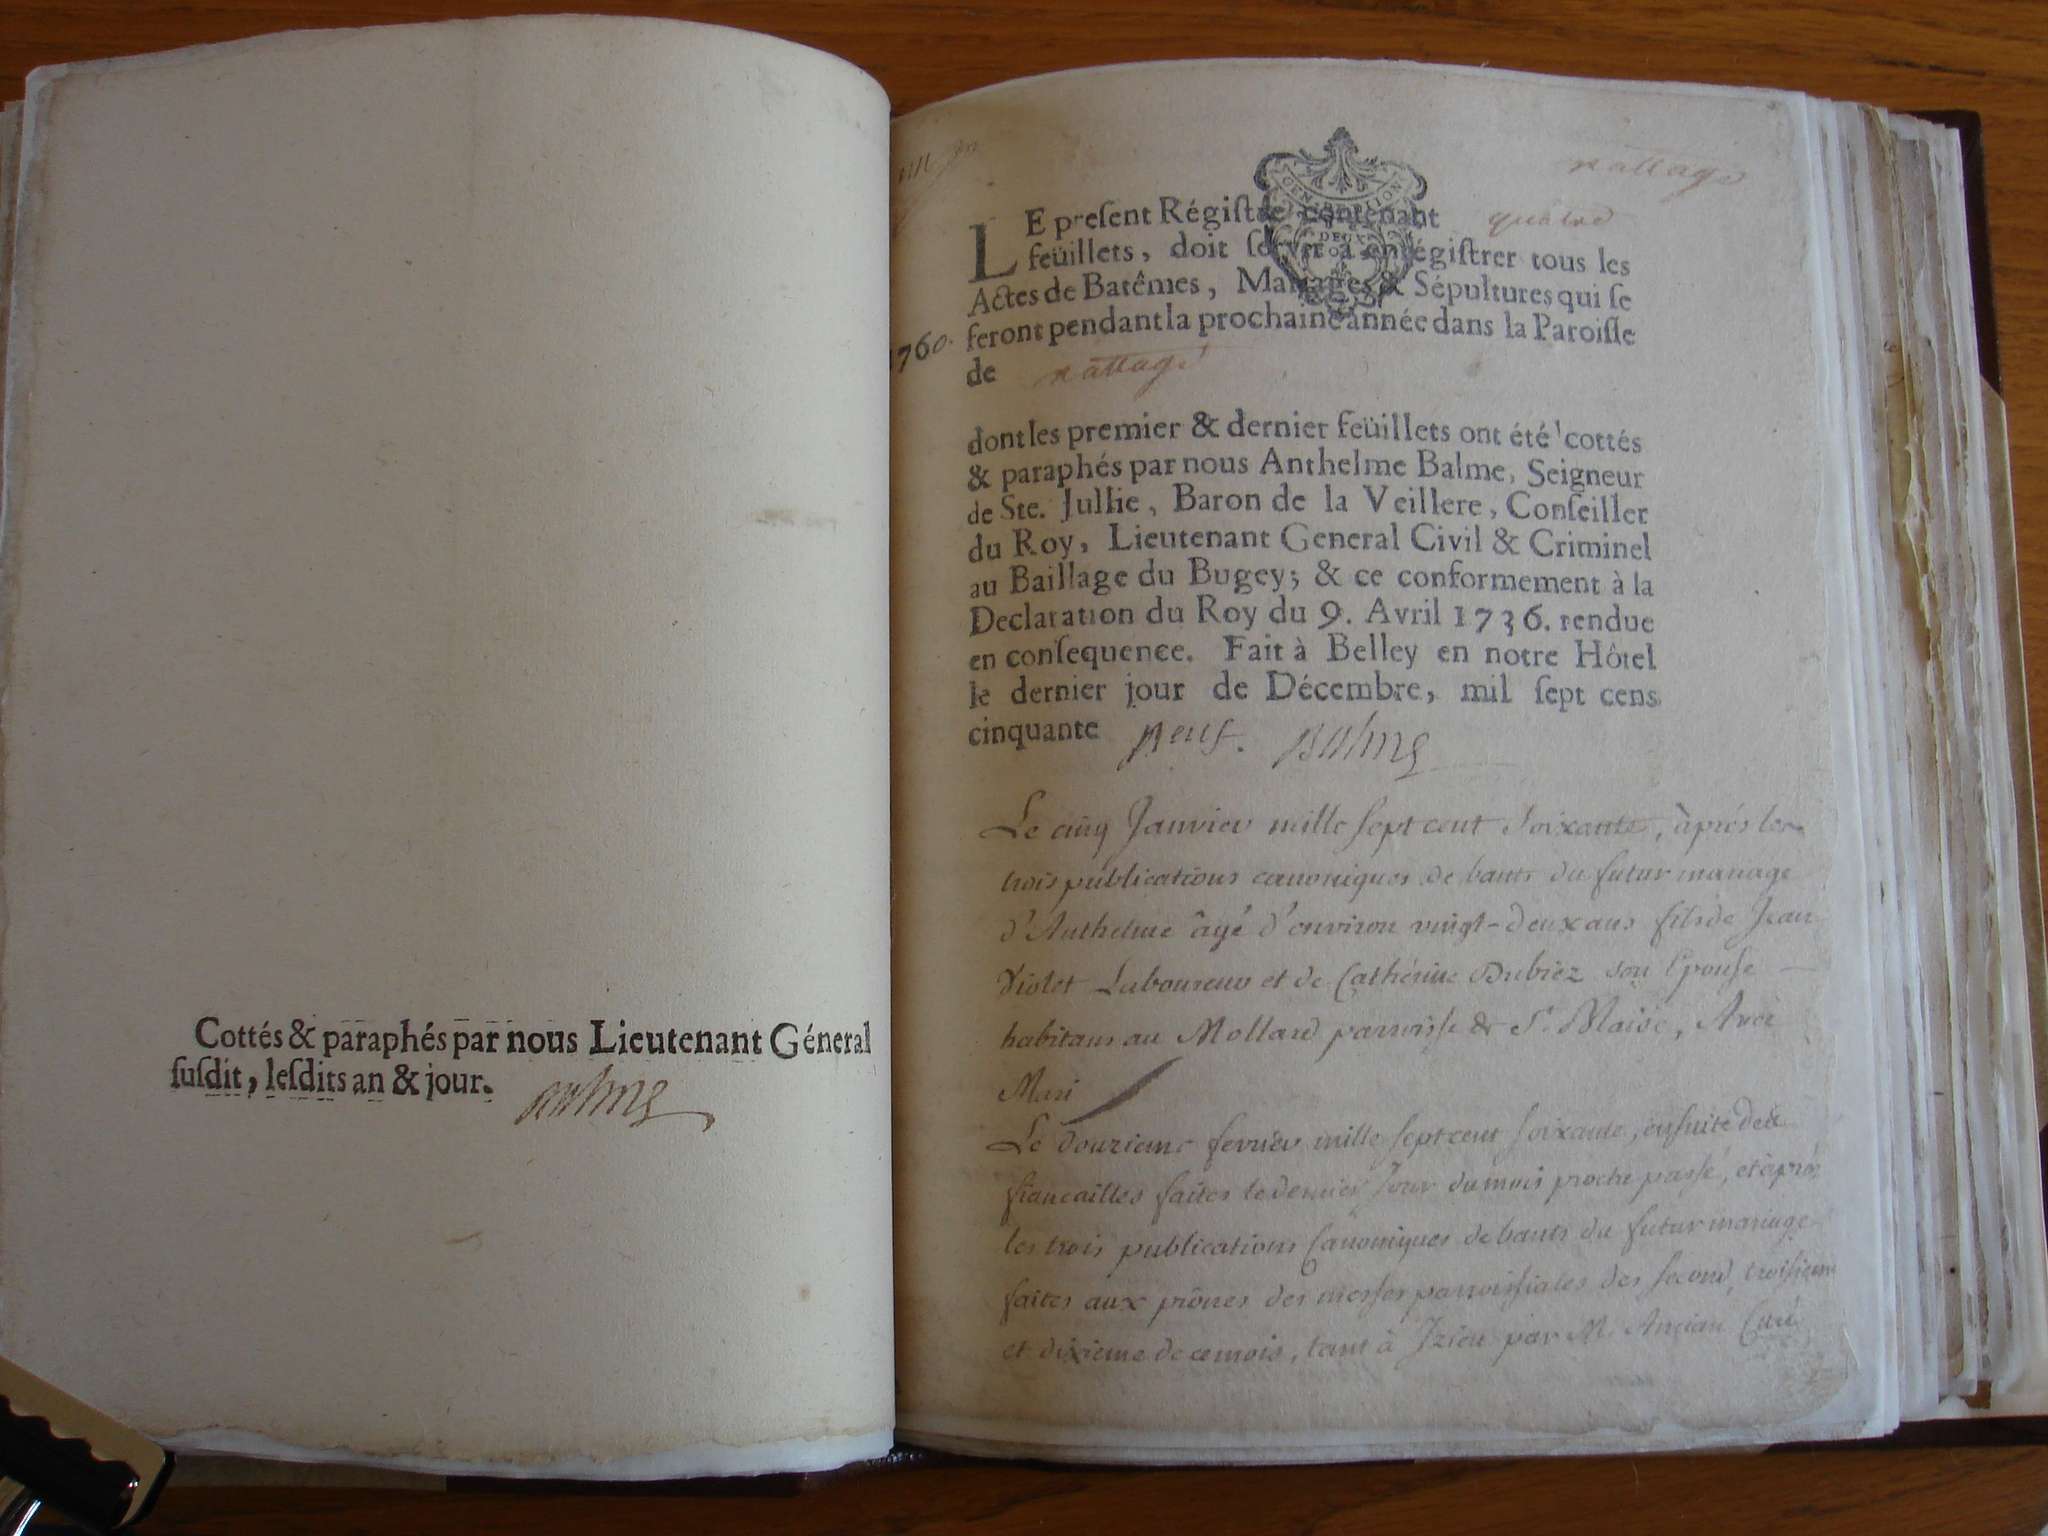 Cottés & paraphés par nous Lieutenant Géneral
ſuſdit, leſdits an & jour. Balme
nattage
GENERATION
DEUX
SOLS
LE preſent Régiſtre contenant quatre
feüillets, doit ſervir à enrégiſtrer tous les
Actes de Batêmes, Mariages & Sépultures qui ſe
feront pendant la prochaine année dans la Paroiſſe
1760.
de nattage
dont les premier & dernier feüillets ont été cottés
& paraphés par nous Anthelme Balme, Seigneur
de Ste. Jullie, Baron de la Veillere, Conſeiller
du Roy, Lieutenant General Civil & Criminel
au Baillage du Bugey; & ce conformement à la
Declaration du Roy du 9. Avril 1736. rendue
en conſequence. Fait à Belley en notre Hôtel
le dernier jour de Décembre, mil ſept cens
cinquante neuf. Balme
Le cinq Janvier mille sept cent Soixante, après les
trois publications canoniques de bants du futur mariage
d'Anthelme âgé d'environ vingt-deux ans fils de Jean
Violet Laboureur et de Catherine Dubiez son Epouse
habitans au Mollard parroisse de St. Blaise, Avec
Mari
Le douzieme fevrier mille sept cent soixante, ensuite des
fiancailles faites le dernier Jour du mois proche passé, et après
les trois publications Canoniques de bants du futur mariage
faites aux prônes des messes parroissiales des second, troisieme
et dixieme de ce mois, tant à Izieu par M. Ancian Curé